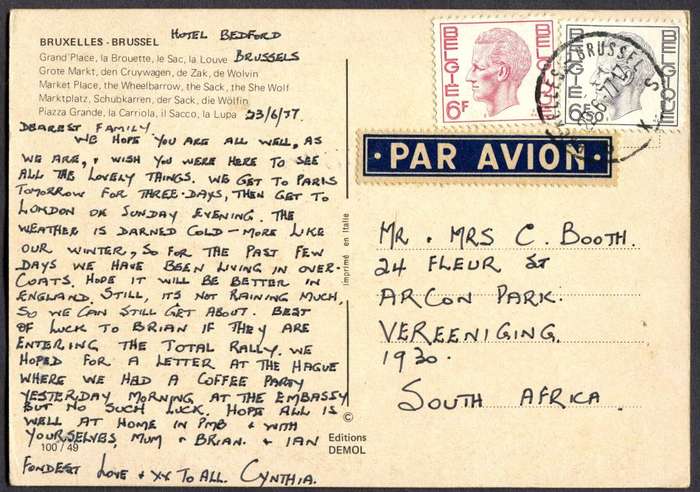 HOTEL BEDFORD
BRUXELLES - BRUSSEL
BRUSSELS
Grand'Place, la Brouette, le Sac, la Louve
Grote Markt, den Cruywagen, de Zak, de Wolvin
Market Place, the Wheelbarrow, the Sack, the She Wolf
Marktplatz, Schubkarren, der Sack, die Wölfin
Piazza Grande, la Carriola, il Sacco, la Lupa
23/6/77.
DEAREST FAMILY,
WE HOPE YOU ARE ALL WELL, AS
WE ARE, & WISH YOU WERE HERE TO SEE
ALL THE LOVELY THINGS. WE GET TO PARIS
TOMORROW FOR THREE-DAYS, THEN GET TO
LONDON ON SUNDAY EVENING. THE
WEATHER IS DARNED COLD - MORE LIKE
OUR WINTER, SO FOR THE PAST FEW
DAYS WE HAVE BEEN LIVING IN OVER-
COATS. HOPE IT WILL BE BETTER IN
ENGLAND. STILL, IT'S NOT RAINING MUCH,
SO WE CAN STILL GET ABOUT. BEST
OF LUCK TO BRIAN IF THEY ARE
ENTERING THE TOTAL RALLY. WE
HOPED FOR A LETTER AT THE HAGUE
WHERE WE HAD A COFFEE PARTY
YESTERDAY MORNING AT THE EMBASSY
BUT NO SUCH LUCK. HOPE ALL IS
WELL AT HOME IN PMB & WITH
YOURSELVES, MUM & BRIAN & IAN
100 / 49
FONDEST LOVE & XX TO ALL. CYNTHIA.
imprimé en Italie
©
Editions
DEMOL
BELGIE BELGIQUE
6F
BELGIE BELGIQUE
BRUXELLES BRUSSEL
PAR AVION
MR & MRS C. BOOTH.
24 FLEUR ST
ARCON PARK.
VEREENIGING.
1930.
SOUTH AFRICA.